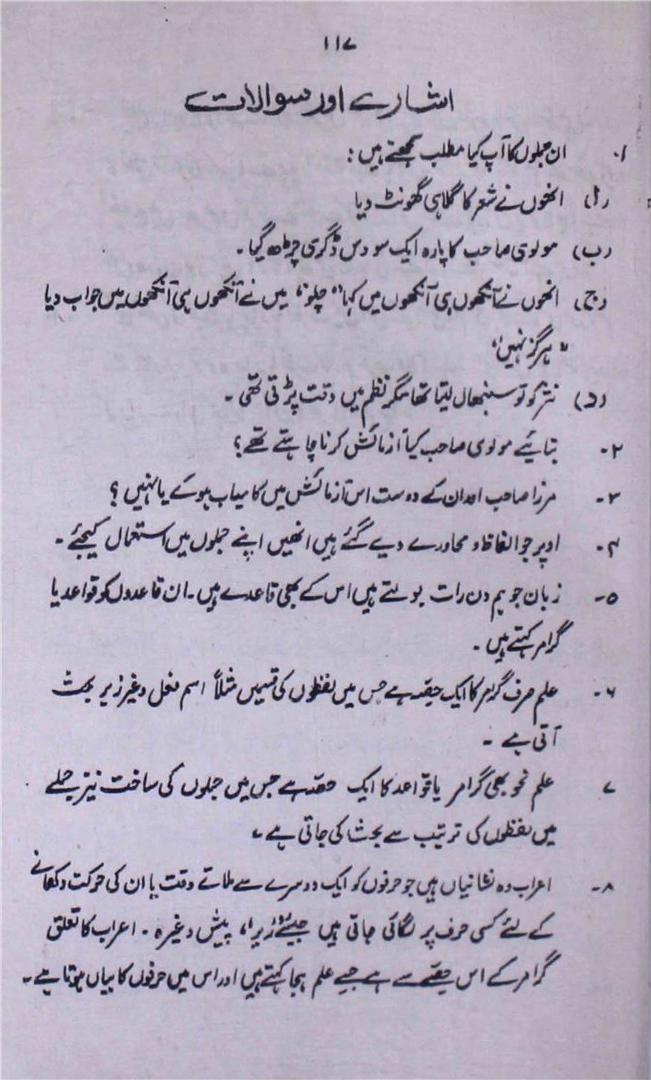 ۱۱۷
اشارے اور سوالات
۱۔ ان جملوں کا آپ کیا مطلب سمجھتے ہیں:
(أ) انھوں نے شعر کا گلا ہی گھونٹ دیا
(ب) مولوی صاحب کا پارہ ایک سو دس ڈگری چڑھ گیا۔
(ج) انھوں نے آنکھوں ہی آنکھوں میں کہا "چلو" میں نے آنکھوں ہی آنکھوں میں جواب دیا
"ہرگز نہیں"
(د) نثر کو تو سنبھال لیتا تھا مگر نظم میں دقت پڑتی تھی۔
۲۔ بتائیے مولوی صاحب کیا آزمائش کرنا چاہتے تھے؟
۳۔ مرزا صاحب اور ان کے دوست اس آزمائش میں کامیاب ہوئے یا نہیں؟
۴۔ اوپر جو الفاظ و محاورے دیے گئے ہیں انھیں اپنے جملوں میں استعمال کیجئے۔
۵۔ زبان جو ہم دن رات بولتے ہیں اس کے بھی قاعدے ہیں۔ ان قاعدوں کو قواعد یا
گرامر کہتے ہیں۔
۶۔ علم صرف گرامر کا ایک حصّہ ہے جس میں لفظوں کی قسمیں مثلاً اسم فعل وغیرہ زیر بحث
آتی ہے ۔
۷ علم نحو بھی گرامر یا قواعد کا ایک حصّہ ہے جس میں جملوں کی ساخت نیز جملے
میں لفظوں کی ترتیب سے بحث کی جاتی ہے۔
۸۔ اعراب وہ نشانیاں ہیں جو حرفوں کو ایک دوسرے سے ملاتے وقت یا ان کی حرکت دکھانے
کے لئے کسی حرف پر لگائی جاتی ہیں جیسے زیر، پیش وغیرہ۔ اعراب کا تعلق
گرامر کے اس حصّے سے ہے جسے علم ہجا کہتے ہیں اور اس میں حرفوں کا بیان ہوتا ہے۔